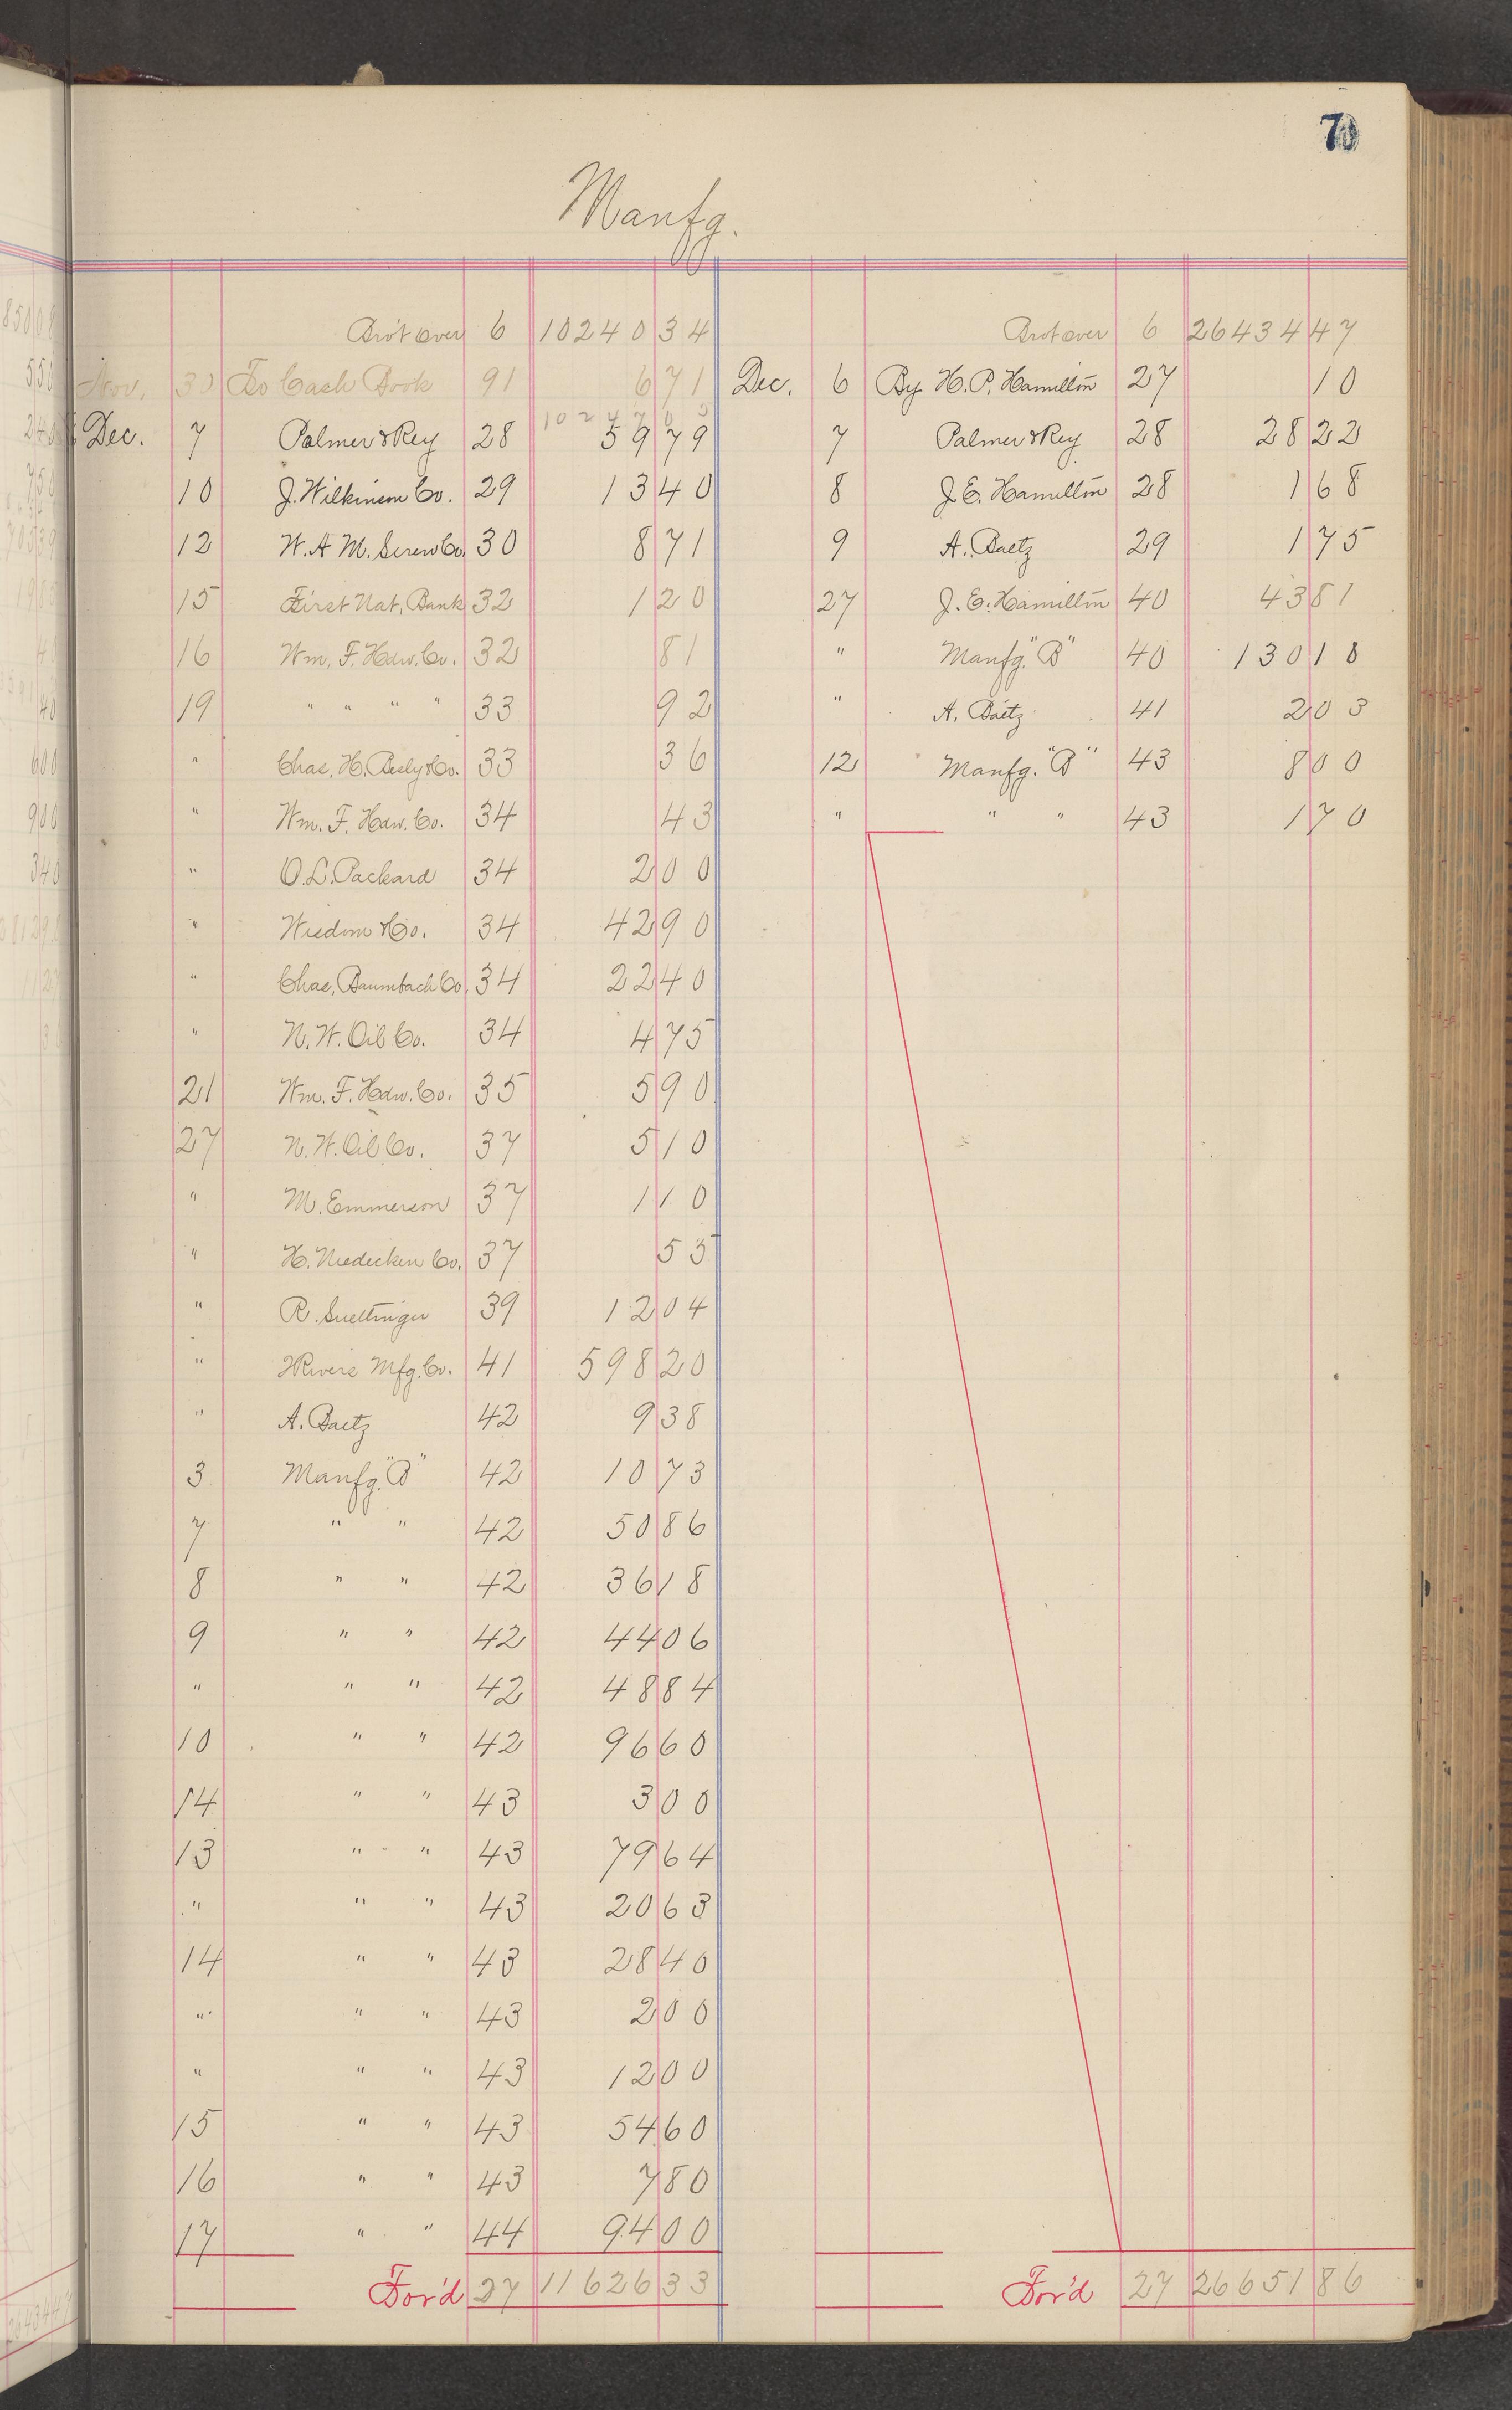 70
Manfg.
Brot over 6 10240 34
Nov. 30 To Cash Book 91 6 71
10247 0 5
Dec. 7 Palmer & Rey 28 59 79
10 J. Wilkinson Co. 29 13 40
12 W. A M. Screw Co. 30 8 71
15 First Nat. Bank 32 1 20
16 Wm. F. Hdw. Co. 32 81
19 " " " " 33 92
" Chas. H. Besly & Co. 33 36
" Wm. F. Hdw. Co. 34 43
" O. L. Packard 34 2 00
" Wisdom & Co. 34 42 90
" Chas. Baumbach Co. 34 22 40
" N. W. Oil Co. 34 4 75
21 Wm. F. Hdw. Co. 35 5 90
27 N. W. Oil Co. 37 5 10
" M. Emmerson 37 1 10
" H. Niedecken Co. 37 55
" R. Suettinger 39 12 04
" 2 Rivers Mfg. Co. 41 598 20
" A. Baetz 42 9 38
3 Manfg. "B" 42 10 73
7 " " 42 50 86
8 " " 42 36 18
9 " " 42 44 06
" " " 42 48 84
10 " " 42 96 60
14 " " 43 3 00
13 " " 43 79 64
" " " 43 20 63
14 " " 43 28 40
" " " 43 2 00
" " " 43 12 00
15 " " 43 54 60
16 " " 43 7 80
17 " " 44 94 00
For'd 27 11626 33
Brot over 6 26434 47
Dec. 6 By H. P. Hamilton 27 10
7 Palmer & Rey 28 28 22
8 J. E. Hamilton 28 1 68
9 A. Baetz 29 1 75
27 J. E. Hamilton 40 43 81
" Manfg. "B" 40 130 18
" A. Baetz 41 2 03
12 Manfg. "B" 43 8 00
" " " 43 1 70
For'd 27 26651 86